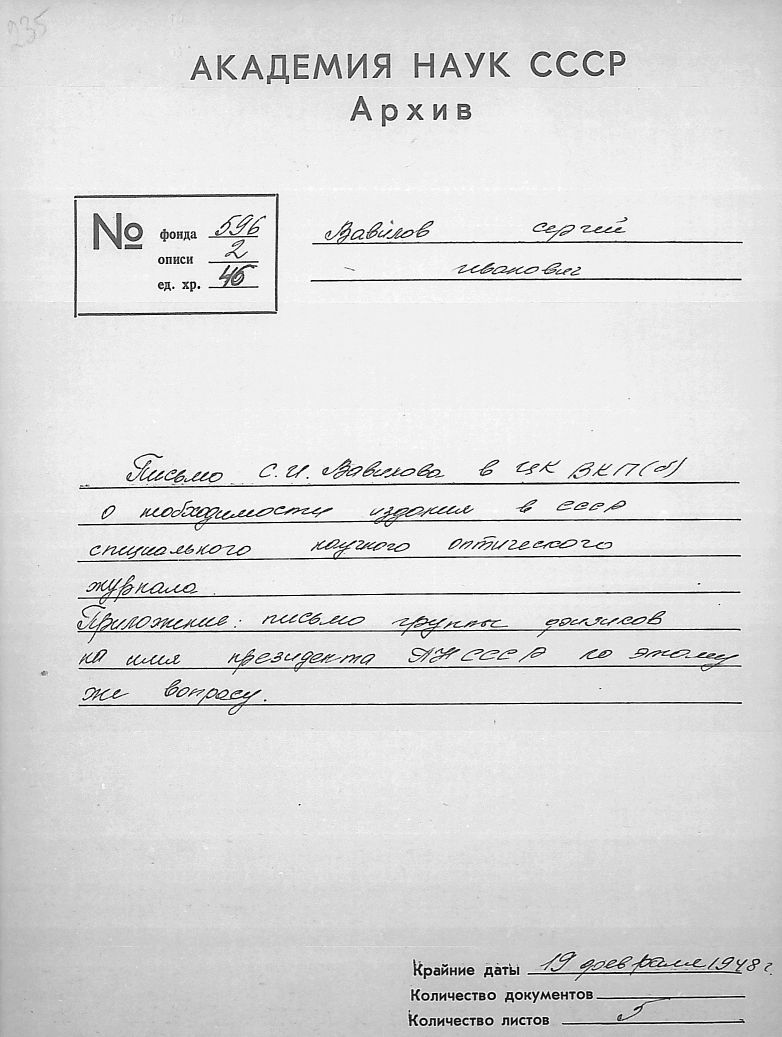 235
АКАДЕМИЯ НАУК СССР
Архив
№ фонда 596
описи 2
ед. хр. 45
Вавилов Сергей
Иванович
Письмо С.И. Вавилова в ЦК ВКП(б)
о необходимости издания в СССР
специального научного оптического
журнала.
Приложение: письмо группы физиков
на имя президента АН СССР по этому
же вопросу.
Крайние даты 19 февраля 1948 г.
Количество документов
Количество листов 5